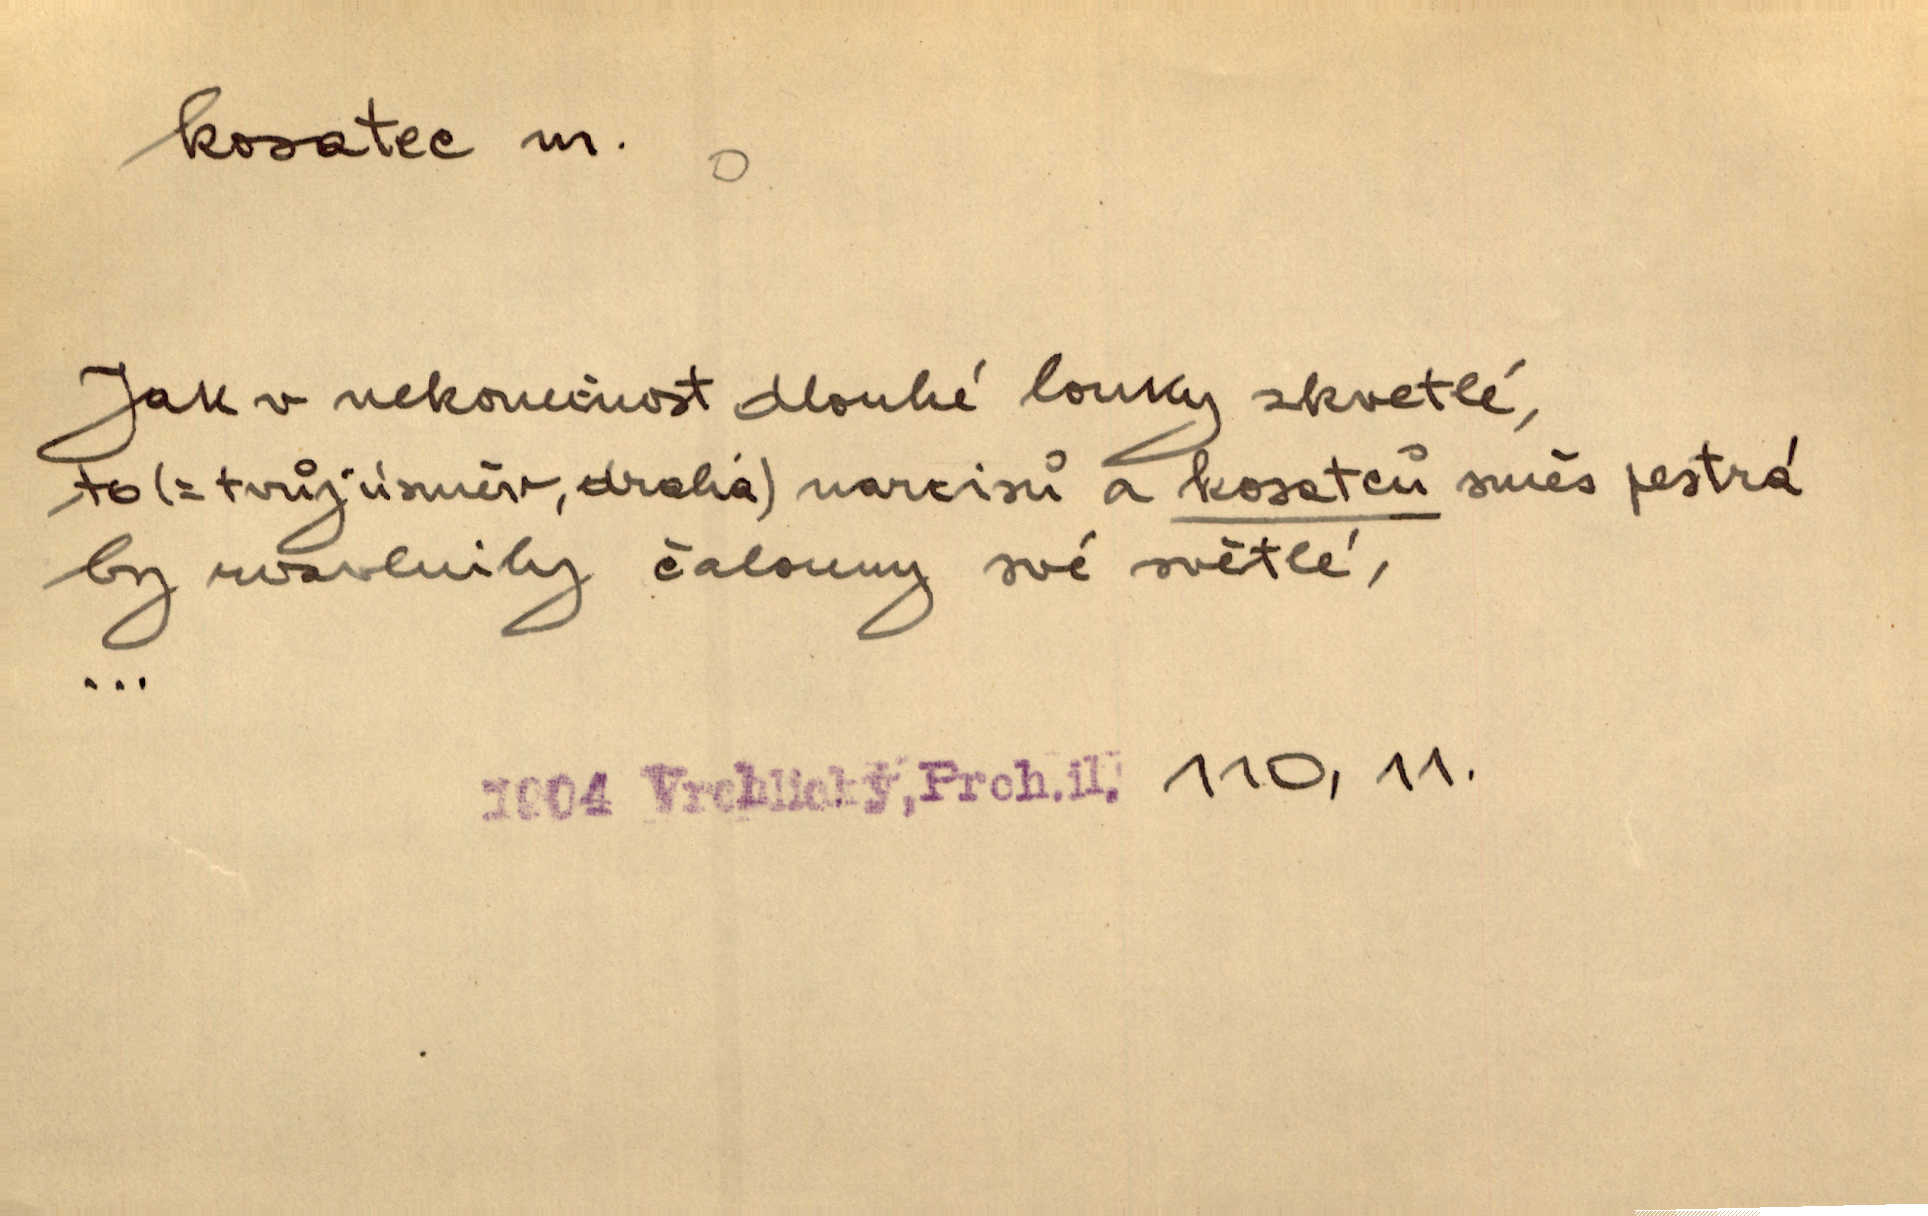 kosatec m.
Jak v nekonečnost dlouhé louky zkvetlé,
to (= tvůj úsměv, drahá) narcisů a kosatců směs pestrá
by rozvlnily čalouny své světlé,
...
1904 Vrchlický, Prch. il. 110, 11.